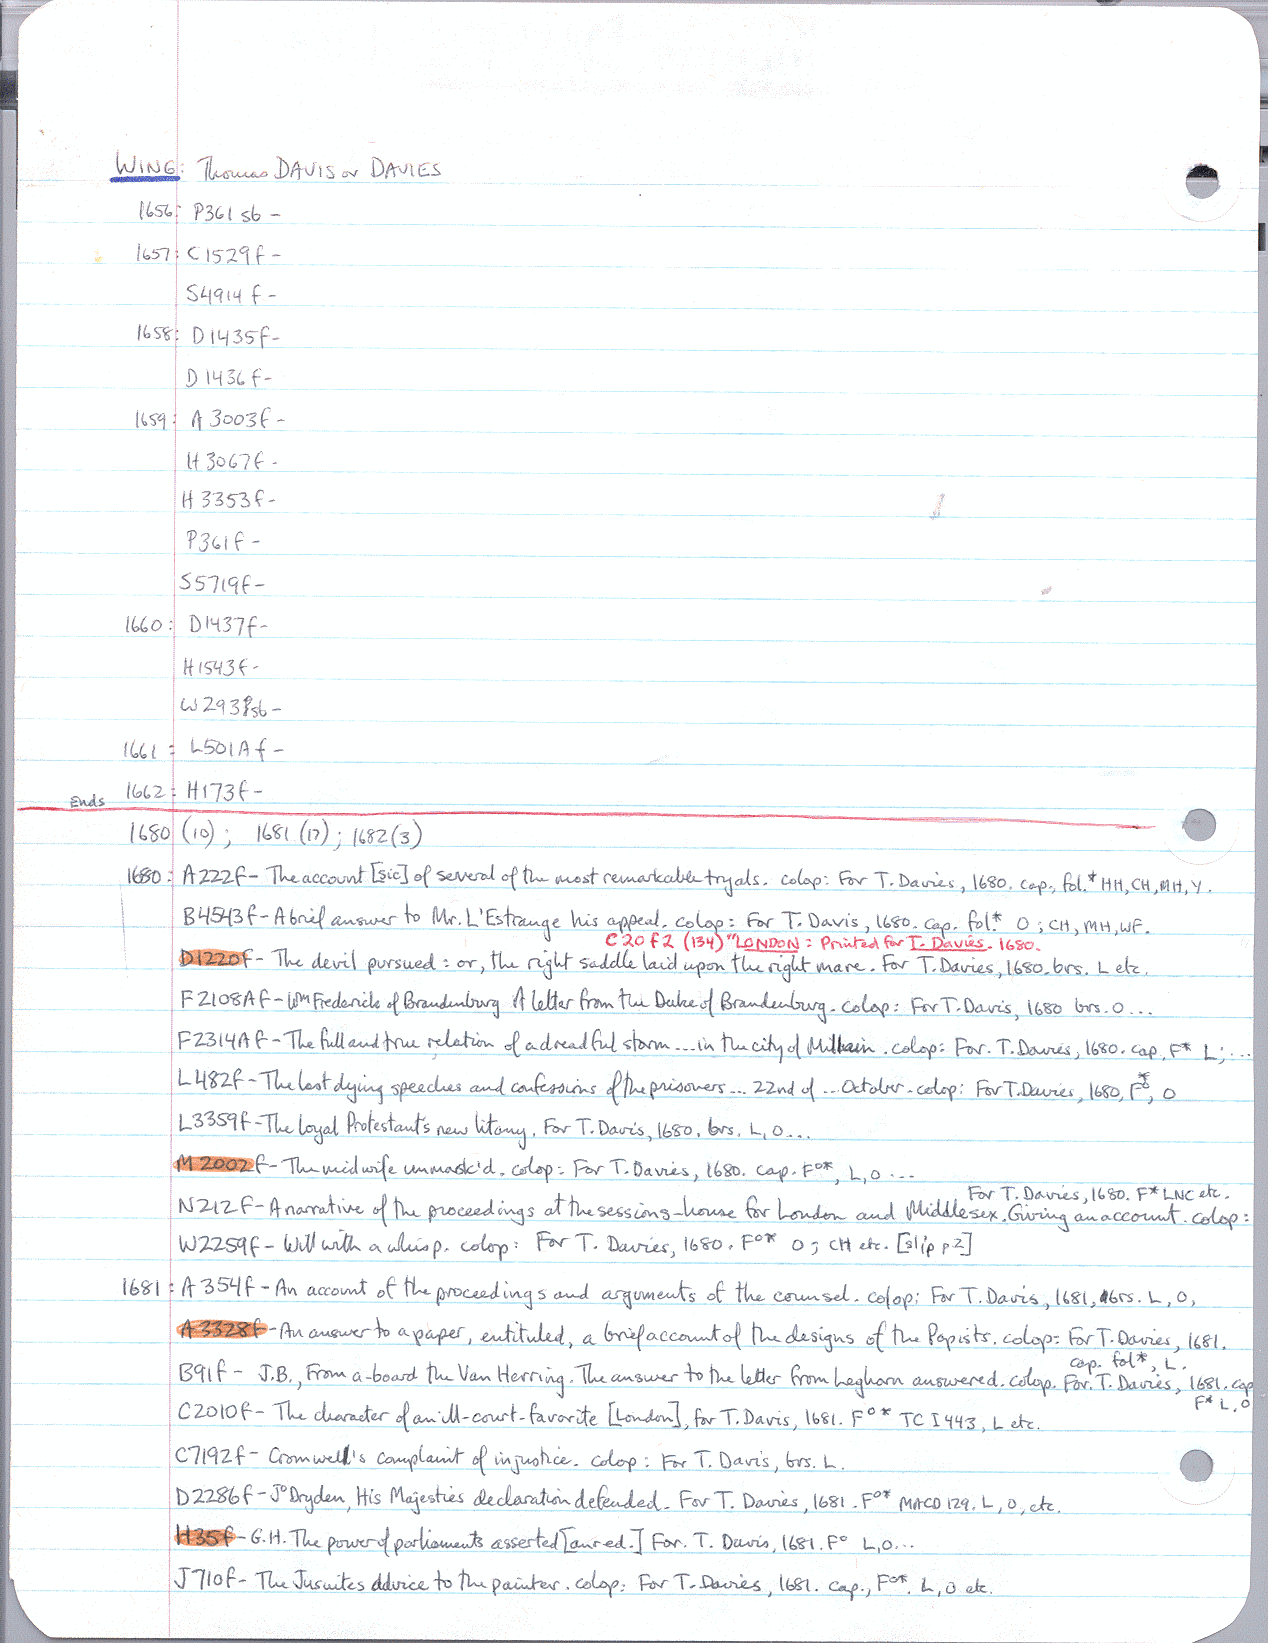 WING: Thomas DAVIS or DAVIES
1656: P361 sb -
1657: C1529f -
S4914 f -
1658: D1435f -
D1436 f -
1659: A 3003f -
H 3067f -
H 3353f -
P361f -
S5719f -
1660: D1437f -
H1543f -
W293 sb -
1661: L501A f -
Ends 1662: H173f -
1680 (10); 1681 (17); 1682 (3)
1680: A222f - The account [sic] of several of the most remarkable tryals. colop: For T. Davies, 1680. cap., fol.* HH, CH, MH, Y.
B4543f - A brief answer to Mr. L'Estrange his appeal. colop: For T. Davis, 1680. cap. fol.* O; CH, MH, WF.
C 20 f 2 (134) "LONDON: Printed for T. Davies. 1680.
D1220f - The devil pursued: or, the right saddle laid upon the right mare. For T. Davies, 1680. brs. L etc.
F2108Af - Wm Frederick of Brandenburg A letter from the Duke of Brandenburg. colop: For T. Davis, 1680 brs. O...
F2314Af - The full and true relation of a dreadful storm ... in the city of colop: For. T. Davies, 1680. cap, F* L; ...
L482f - The last dying speeches and confessions of the prisoners ... 22nd of ... October. colop: For T. Davies, 1680, F°*, O
L3359f - The loyal Protestant's new litany. For T. Davis, 1680. brs. L, O ...
M2002f - The midwife unmask'd. colop: For T. Davies, 1680. cap. F°*, L, O ...
For T. Davies, 1680. F* LNC etc.
N212f - A narrative of the proceedings at the sessions-house for London and Middlesex. Giving an account. colop:
W2259f - Will with a whisp. colop: For T. Davies, 1680. F°* O; CH etc. [slip p2]
1681: A354f - An account of the proceedings and arguments of the counsel. colop: For T. Davis, 1681, brs. L, O,
A3328f - An answer to a paper, entituled, a brief account of the designs of the Papists. colop: For T. Davies, 1681.
cap. fol*, L.
B91f - J.B., From a-board the Van Herring. The answer to the letter from Leghorn answered. colop. For. T. Davies, 1681. cap
F* L, O
C2010f - The character of an ill-court-favorite [London], for T. Davis, 1681. F°* TC I 443, L etc.
C7192f - Cromwell's complaint of injustice. colop: For T. Davis, brs. L.
D2286f - Jº Dryden, His Majesties declaration defended. For T. Davies, 1681. F°* MACD 129. L, O, etc.
H35f - G.H. The power of parliaments asserted [anr ed.] For. T. Davis, 1681. F° L, O...
J710f - The Jusuites advice to the painter. colop: For T. Davies, 1681. cap., F°*. L, O etc.